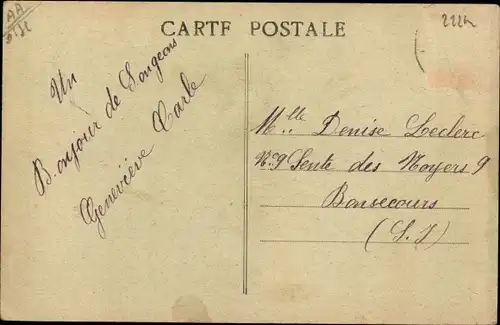 AA
CARTE POSTALE
222h
Un
Bonjour de Songeons
Geneviève Carle
Mlle Denise Leclerc
9 Sente des Noyers 9
Bonsecours
(S. I)